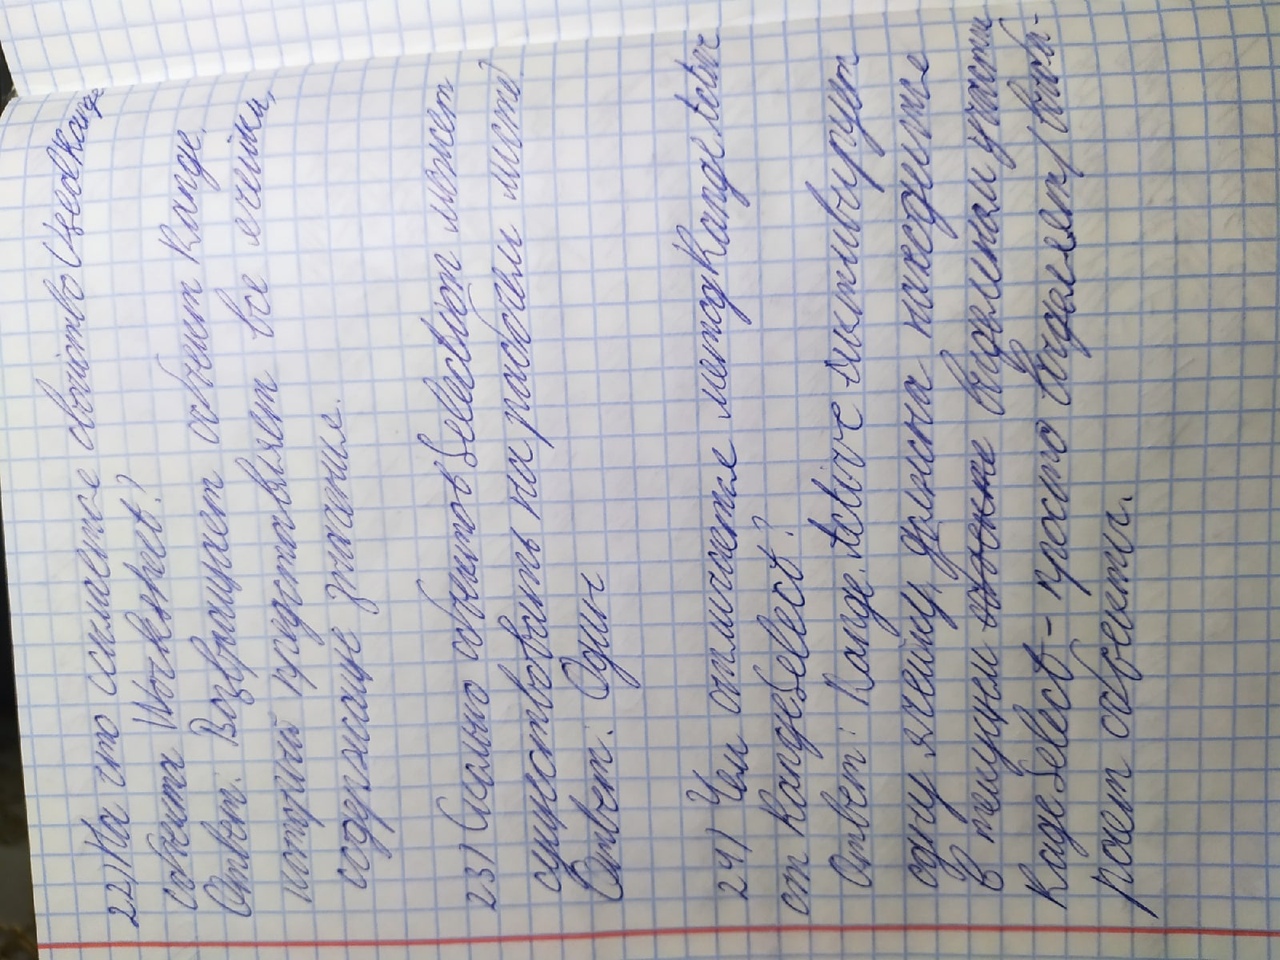 22) На что ссылается свойство UsedRange
объекта Worksheet?
Ответ: Возвращает объект Range,
который представляет все ячейки,
содержащие значения.
23) Сколько объектов Selection может
существовать на рабочем листе?
Ответ: Один
24) Чем отличается метод Range.Activ
от Range.Select?
Ответ: Range.Active активирует
одну ячейку, должна находиться
в текущем выделенном участке
Range.Select - просто выделяет/выби-
рает объекты.